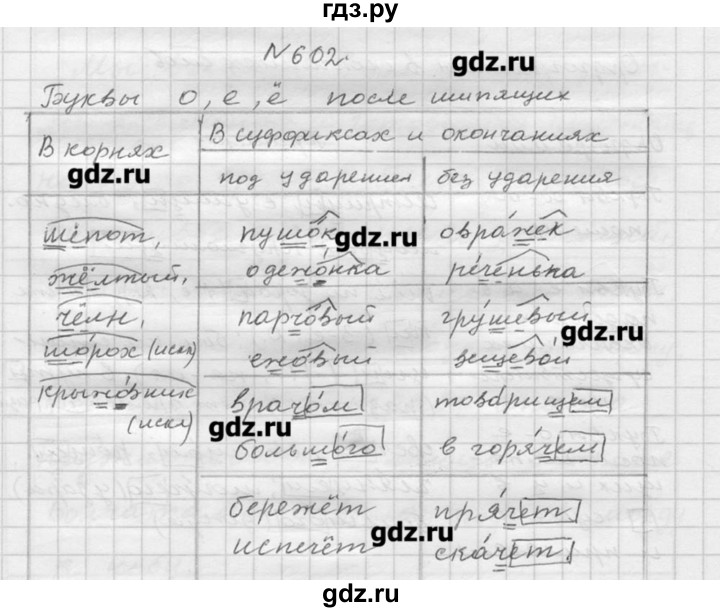 гдз.ру
N 602.
gdz.ru
Буквы о, е, ё после шипящих
В корнях
В суффиксах и окончаниях
gdz.ru
под ударением
без ударения
шёпот,
пушок
gdz.ru
овражек
жёлтый,
одежонка
реченька
чёлн,
парчовый
грушевый
gdz.ru
шорох (искл)
ежовый
вещевой
крыжовник
(искл)
врачом
товарищем
gdz.ru
большого
в горячем
бережёт
прячет.
gdz.ru
испечёт
скачет.
gdz.ru